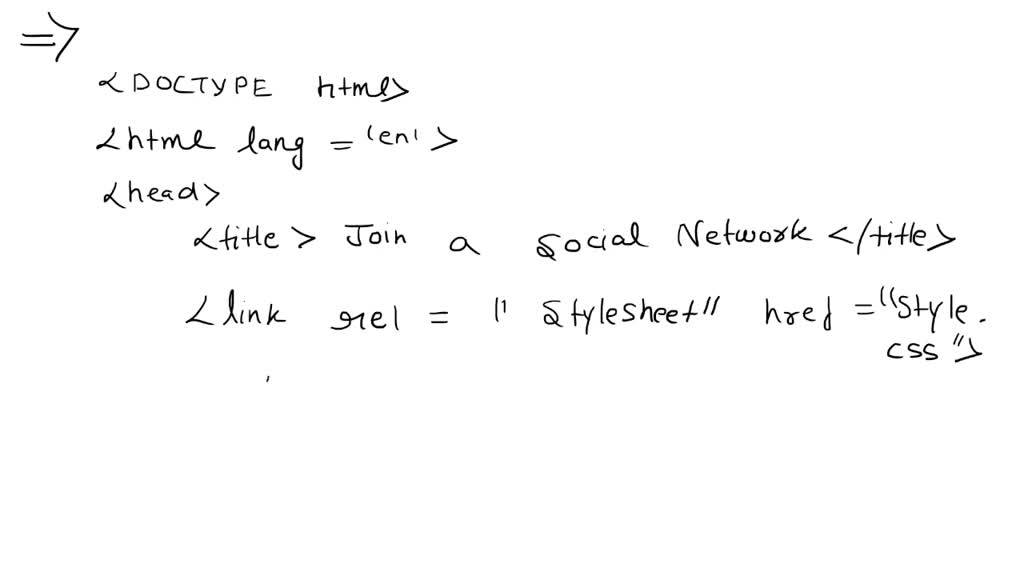 =>
<DOCTYPE html>
<html lang = 'en' >
<head>
<title > Join a Social Network </title>
<link rel = " Stylesheet" href = "Style.
css">